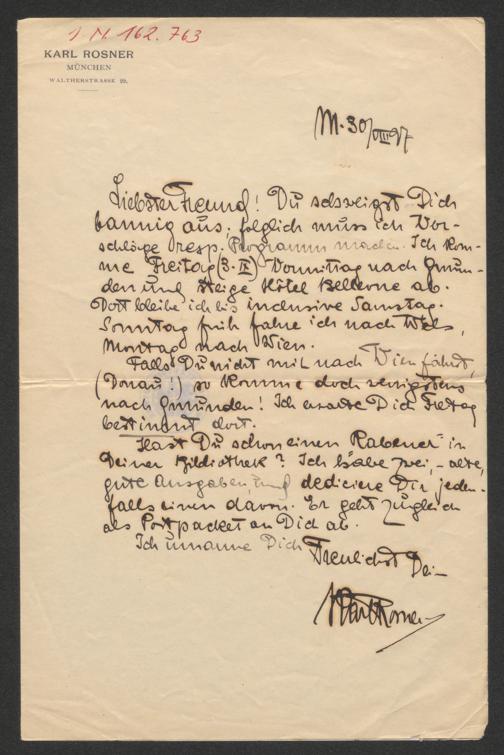 J.N. 162.763
KARL ROSNER
MÜNCHEN
WALTHERSTRASSE 22.
M. 30/VIII 97
Liebster Freund! Du schweigst Dich
bannig aus, folglich muss ich Vor-
schläge resp. Programm machen. Ich kom-
me Freitag (3. IX) Vormittag nach Gmun-
den und steige Hôtel Bellevue ab.
Dort bleibe ich bis inclusive Samstag.
Sonntag früh fahre ich nach Wels,
Montag nach Wien.
Falls Du nicht mit nach Wien fährst,
(Donau!) so komme doch wenigstens
nach Gmunden! Ich erwarte Dich Freitag
bestimmt dort.
Hast Du schon einen "Rabener" in
Deiner Bibliothek? Ich habe zwei, – alte,
gute Ausgaben, und dediciere Dir jeden-
falls einen davon. Er geht zugleich
als Postpacket an Dich ab.
Ich umarme Dich
Treulichst Dein
Karl Rosner